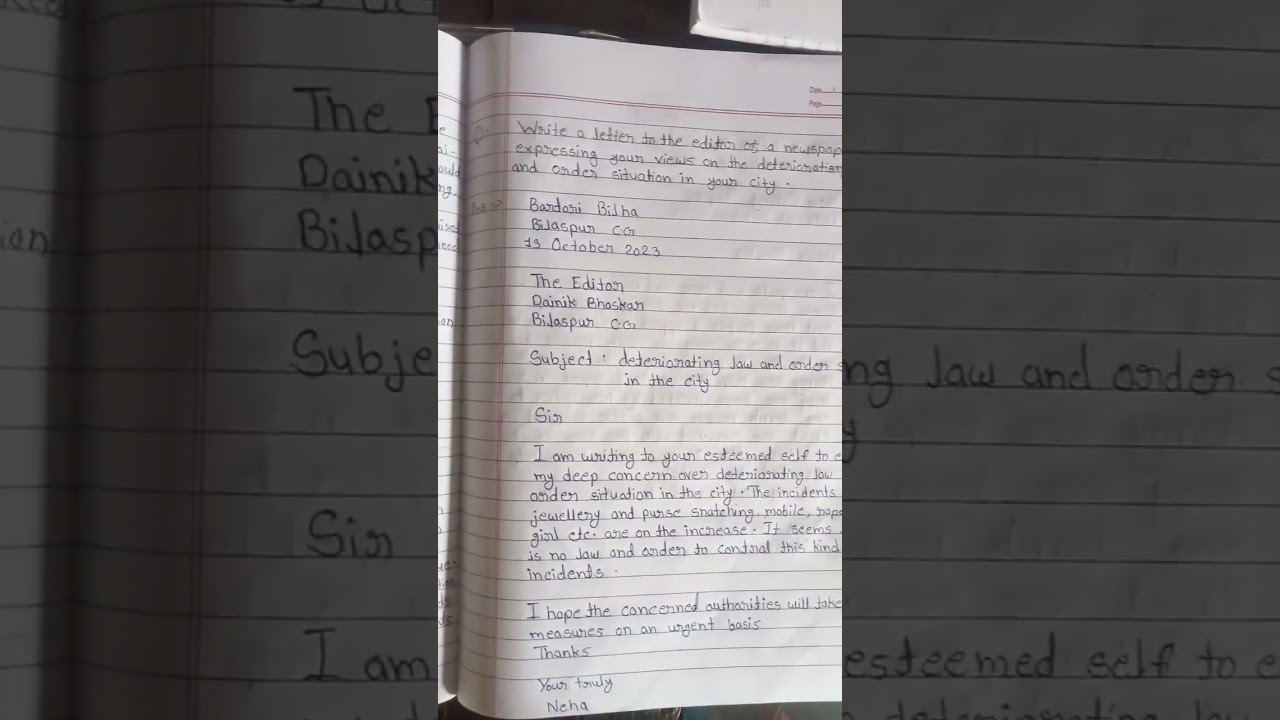 Date
Page
Q.
Write a letter to the editor of a newspap
expressing your views on the deterioration
and order situation in your city .
Ans =>
Bardori Bilha
Bilaspur CG
19 October 2023
The Editor
Dainik Bhaskar
Bilaspur CG
Subject : deteriorating law and order s
in the city
Sir
I am writing to your esteemed self to e
my deep concern over deteriorating law
order situation in the city . The incidents
jewellery and purse snatching, mobile, rape
girl etc. are on the increase . It seems
is no law and order to control this kind
incidents .
I hope the concerned authorities will take
measures on an urgent basis
Thanks
Your truly
Neha